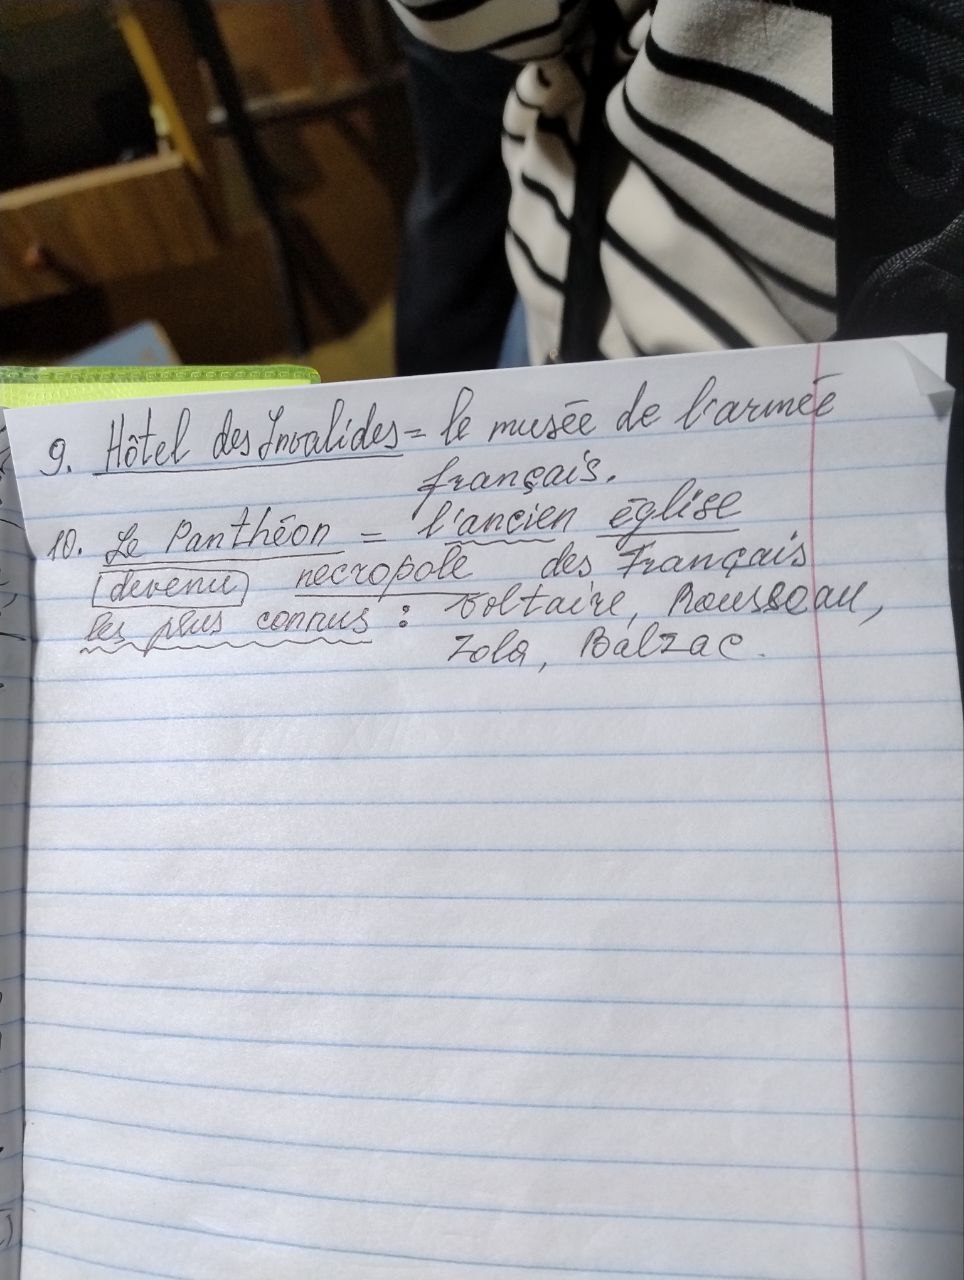 9. Hôtel des Invalides = le musée de l'armée
français.
10. Le Panthéon = l'ancien église
devenu necropole des Français
les plus connus : Voltaire, Rousseau,
Zola, Balzac.